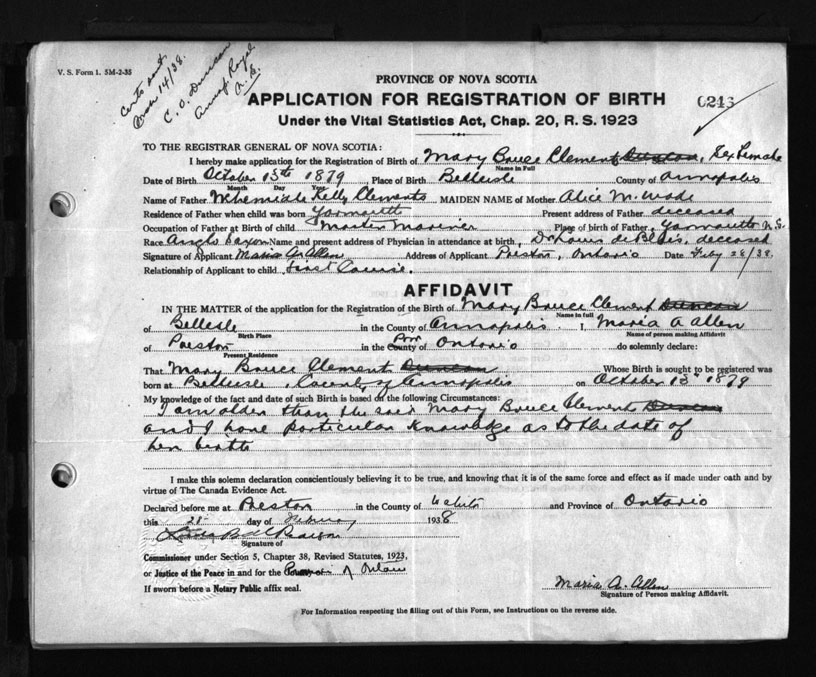 V. S. Form 1. 5M-2-35
Certs sent
Mar 14/38.
C. O. Duncan
Annap Royal
N. S.
PROVINCE OF NOVA SCOTIA
APPLICATION FOR REGISTRATION OF BIRTH
0246
Under the Vital Statistics Act, Chap. 20, R. S. 1923
TO THE REGISTRAR GENERAL OF NOVA SCOTIA:
I hereby make application for the Registration of Birth of Mary Bruce Clement Duncan, Sex Female
Name in Full
Date of Birth October 13th 1879 Place of Birth Bellisle County of Annapolis
Month Day Year
Name of Father Kelly Clements MAIDEN NAME of Mother Alice M. Wade
Residence of Father when child was born Yarmouth Present address of Father deceased
Occupation of Father at Birth of Child Master Mariner Place of birth of Father, Yarmouth N.S.
Race Anglo Saxon Name and present address of Physician in attendance at birth, Dr Louis de Blois, deceased
Signature of Applicant Maria A. Allen Address of Applicant Preston, Ontario Date Feby 28/38.
Relationship of Applicant to child first Cousin.
AFFIDAVIT
IN THE MATTER of the application for the Registration of the Birth of Mary Bruce Clement Duncan
Name in full
of Bellisle in the County of Annapolis I, Maria A Allen
Birth Place Name of person making Affidavit
of Preston in the County Prov of Ontario do solemnly declare:
Present Residence
That Mary Bruce Clement Duncan Whose Birth is sought to be registered was
born at Bellisle, County of Annapolis on October 13th 1879
My knowledge of the fact and date of such Birth is based on the following Circumstances:
I am older than the said Mary Bruce Clement Duncan
and I have particular knowledge as to the date of
her birth
I make this solemn declaration conscientiously believing it to be true, and knowing that it is of the same force and effect as if made under oath and by
virtue of The Canada Evidence Act.
Declared before me at Preston in the County of and Province of Ontario
this 28 day of February 1938
Signature of
Commissioner under Section 5, Chapter 38, Revised Statutes, 1923,
or Justice of the Peace in and for the of Ontario
If sworn before a Notary Public affix seal.
Maria A. Allen
Signature of Person making Affidavit.
For Information respecting the filling out of this Form, see Instructions on the reverse side.